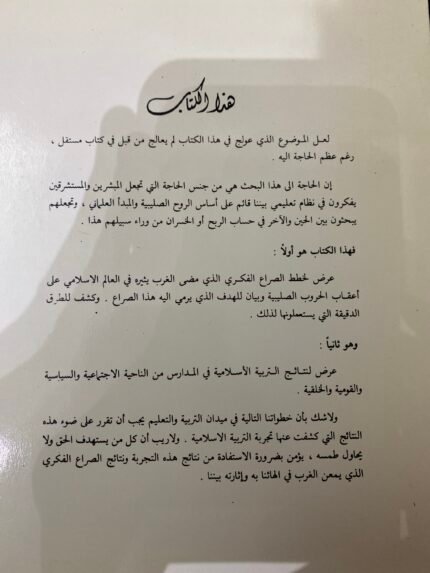 هذا الكتاب
لعـل المـوضوع الذي عولج في هذا الكتاب لم يعالج من قبل في كتاب مستقل ،
رغم عظم الحاجة اليه .
إن الحاجة الى هذا البحث هي من جنس الحاجة التي تجعل المبشرين والمستشرقين
يفكرون في نظام تعليمي بيننا قائم على أساس الروح الصليبية والمبدأ العلماني ، وتجعلهم
يبحثون بين الحين والآخر في حساب الربح أو الخسران من وراء سبيلهم هذا .
فهذا الكتاب هو أولاً :
عرض لخطط الصراع الفكـري الذي مضى الغرب يثيره في العالم الاسلامي على
أعقـاب الحروب الصليبية وبيان للهدف الذي يرمي اليه هذا الصراع . وكشف للطرق
الدقيقة التي يستعملونها لذلك .
وهو ثانياً :
عرض لنتـائـج التـربية الأسـلامية في المـدارس من الناحية الاجتماعية والسياسية
والقومية والخلقية .
ولاشك بأن خطواتنا التالية في ميدان التربية والتعليم يجب أن تقرر على ضوء هذه
النتائج التي كشفت عنها تجربة التربية الاسلامية . ولاريب أن كل من يستهدف الحق ولا
يحاول طمسه ، يؤمن بضرورة الاستفادة من نتائج هذه التجربة ونتائج الصراع الفكري
الذي يمعن الغرب في الهائنا به وإثارته بيننا .